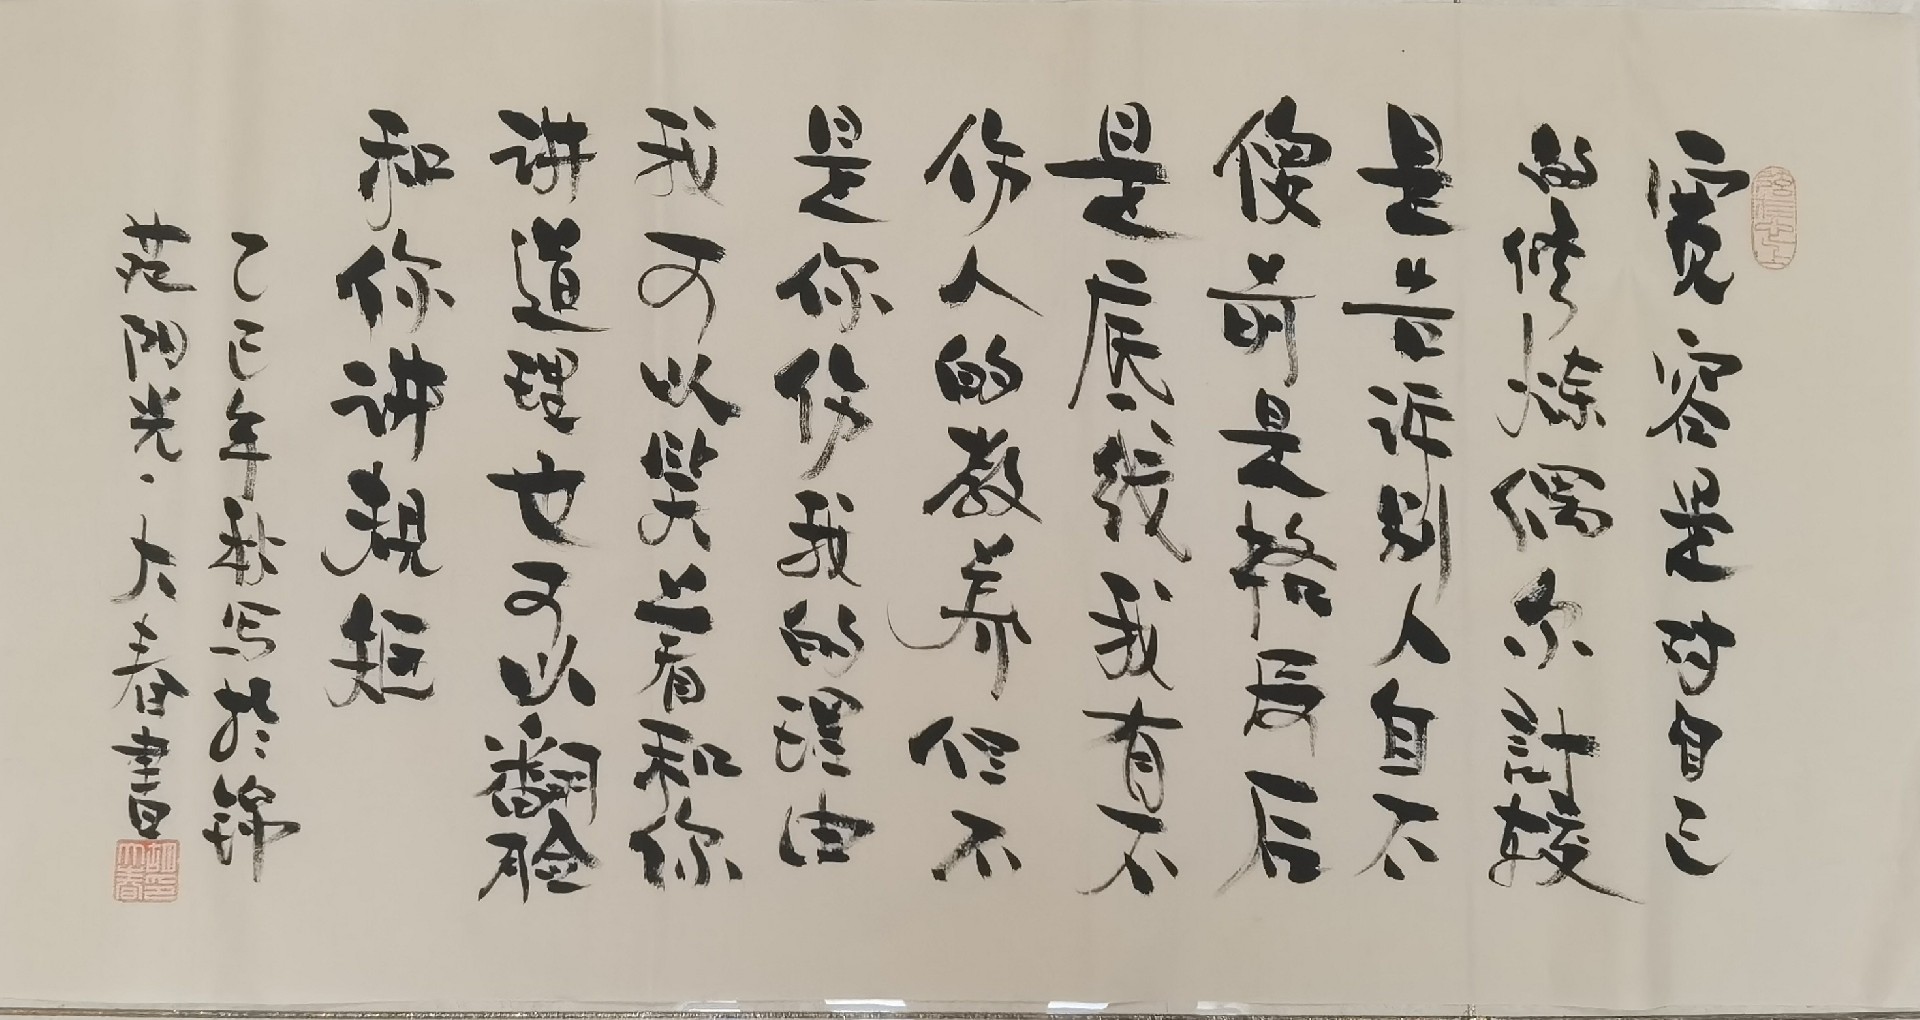 宽容是对自己
的修炼偶尔計较
是告诉别人自不
傻前是格局后
是底线我有不
伤人的教养但不
是你伤我的理由
我可以笑着和你
讲道理也可以翻脸
和你讲规矩
乙巳年秋写於锦
苑阳光·大春書